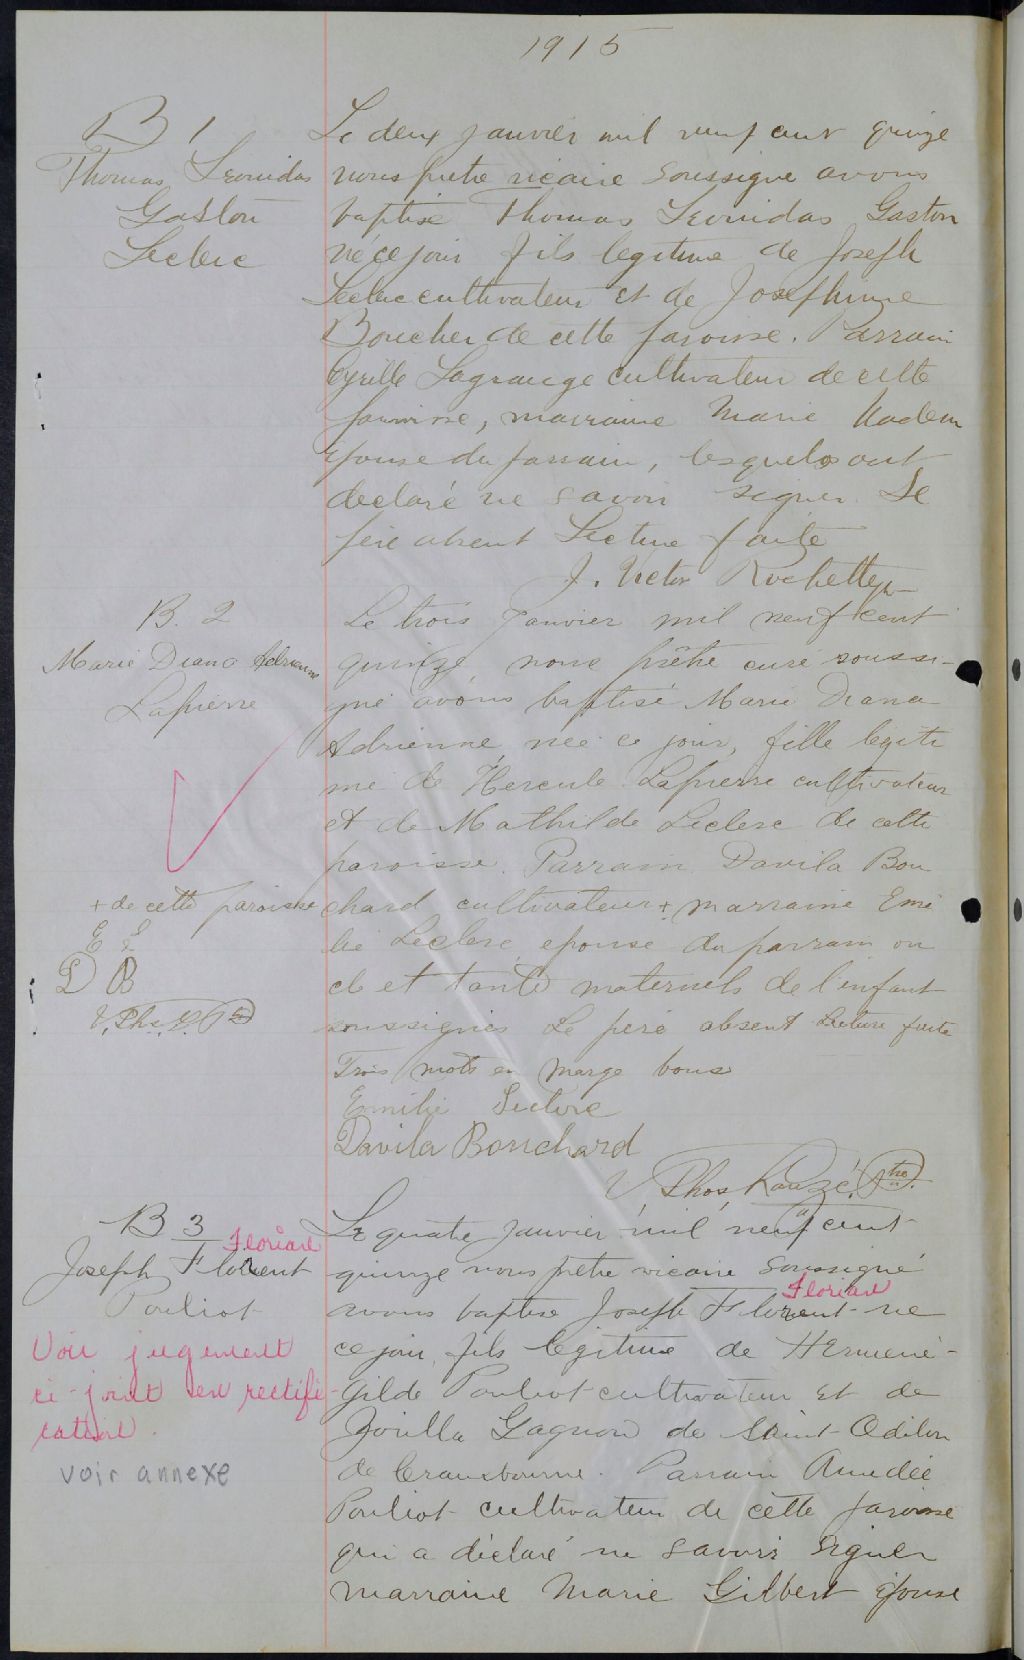 1915
B 1
Thomas Leonidas
Gaston
Leclerc
Le deux janvier mil neuf cent quinze
nous pretre vicaire soussigne avons
baptisé Thomas Leonidas Gaston
né ce jour fils legitime de Joseph
Leclerc cultivateur et de Josephinne
Boucher de cette paroisse. Parrain
Cyrille Lagrange cultivateur de cette
paroisse, marraine Marie Nadeau
epouse du parrain, lesquels ont
declaré ne savoir signer. Le
père absent Lecture faite
J. Victor Rochette ptr
B. 2
Marie Diana Adrienne
Lapierre
Le trois Janvier mil neuf cent
quinze nous prêtre curé soussi-
gné avons baptisé Marie Diana
Adrienne née ce jour, fille légiti
me de Hercule Lapierre cultivateur
et de Mathilde Leclerc de cette
paroisse. Parrain Davila Bou
chard cultivateur + marraine Emi
lie Leclerc epouse du parrain on
cle et tante maternels de l'enfant
soussignés Le père absent Lecture faite
Trois mots en marge bons
+ de cette paroisse
E L
D B
Emilie Leclerc
Davila Bouchard
Ptre
B 3
Florian
Joseph Florent
Pouliot
Voir jugement
ci-joint en rectifi-
cation.
voir annexe
Le quatre janvier mil neuf cent
quinze nous pretre vicaire soussigné
Florian
avons baptise Joseph Florent né
ce jour, fils legitime de Hermené-
gilde Pouliot cultivateur et de
Zoïlla Gagnon de Saint Odilon
de Cranbourne. Parrain Amedée
Pouliot cultivateur de cette paroisse
qui a déclaré ne savoir signer
marraine Marie Gilbert épouse